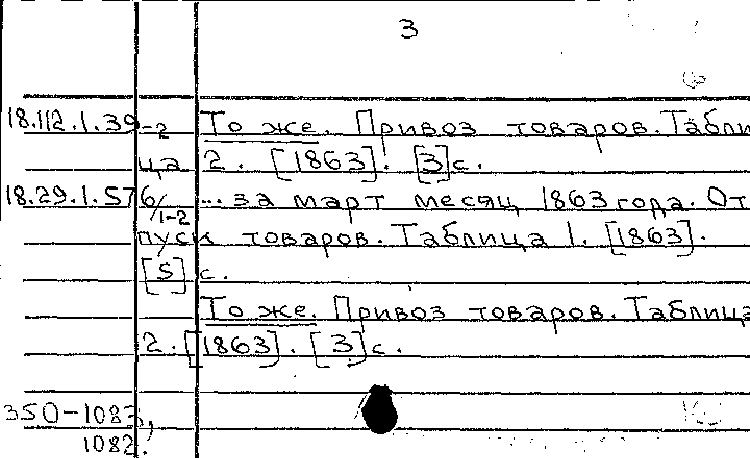 3
18.112.1.39 -2 То же. Привоз товаров. Табли
ца 2. [1863]. [3]с.
18.29.1.57 6/1-2 ...за март месяц 1863 года. От
пуск товаров. Таблица 1. [1863].
[5] с.
То же. Привоз товаров. Таблица
2. [1863]. [3]с.
350-1083,
1082.